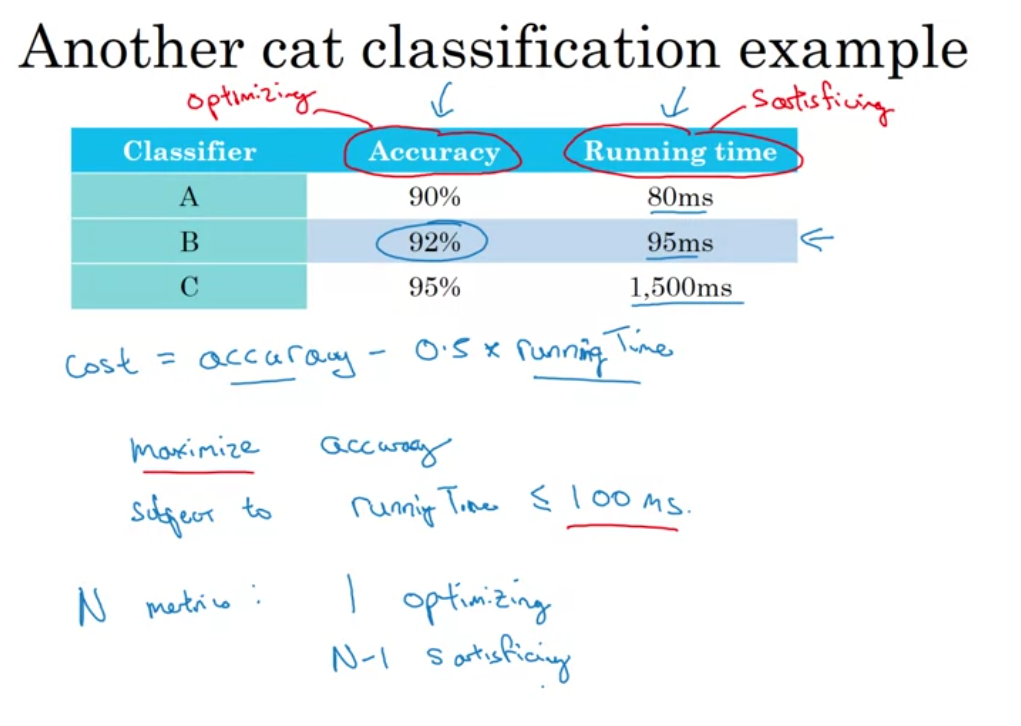 Another cat classification example
optimizing
satisficing
Classifier Accuracy Running time
A 90% 80ms
B 92% 95ms
C 95% 1,500ms
cost = accuracy - 0.5 x running Time
maximize accuracy
subject to running Time ≤ 100 ms.
N metrics: 1 optimizing
N-1 satisficing